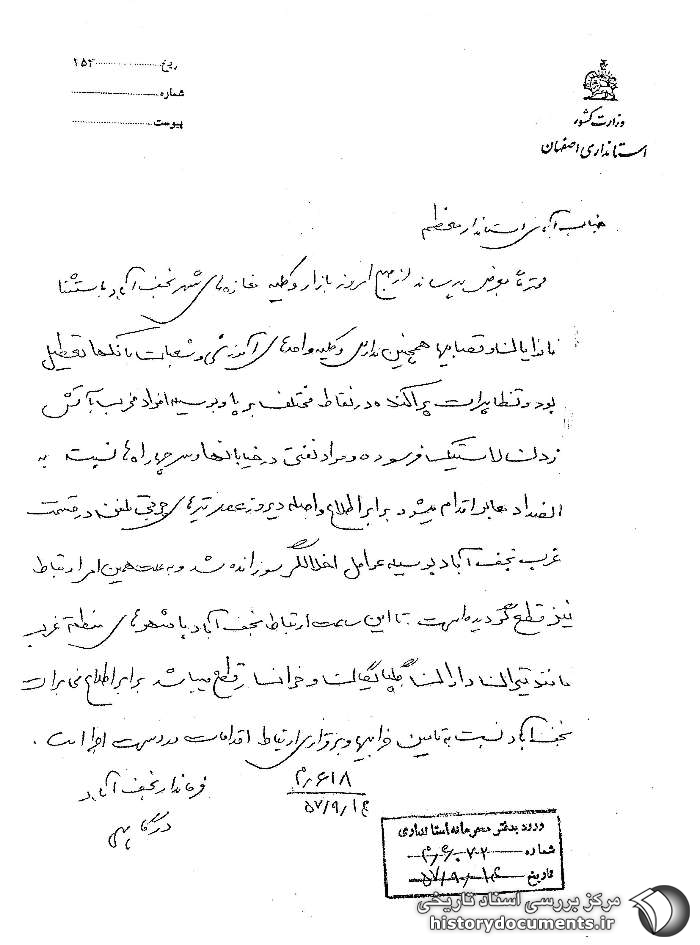 تاریخ ............ ۲۵۳
شماره
پیوست
وزارت کشور
استانداری اصفهان
جناب آقای استاندار معظم
محترماً بعرض میرساند از صبح امروز بازار و کلیه مغازه های شهر نجف آباد باستثنا
نانوایان و قصابیها همچنین مدارس و کلیه واحدهای آموزشی و شعبات بانکها تعطیل
بود و تظاهرات پراکنده در نقاط مختلف برپا و بوسیله افراد مخرب با آتش
زدن لاستیک فرسوده و مواد نفتی در خیابانها و سر چهار راه ها نسبت به
انسداد معابر اقدام میشود برابر اطلاع واصله دیروز عصر تیرهای چوبی تلفن در قسمت
غرب نجف آباد بوسیله عوامل اخلالگر سوزانده شد و به علت همین امر ارتباط
نیز قطع گردیده است تا این ساعت ارتباط نجف آباد با شهرهای منطقه غرب
مانند تیران داران گلپایگان و خوانسار قطع میباشد برابر اطلاع مخابرات
نجف آباد نسبت به تامین خرابیها و برقراری ارتباط اقدامات در دست اجرا است .
فرماندار نجف آباد
۶۱۸/م
۵۷/۹/۱۶
ورود بدفتر محرمانه استانداری
شماره
تاریخ ۵۷/۹/۱۶
مرکز بررسی اسناد تاریخی
historydocuments.ir